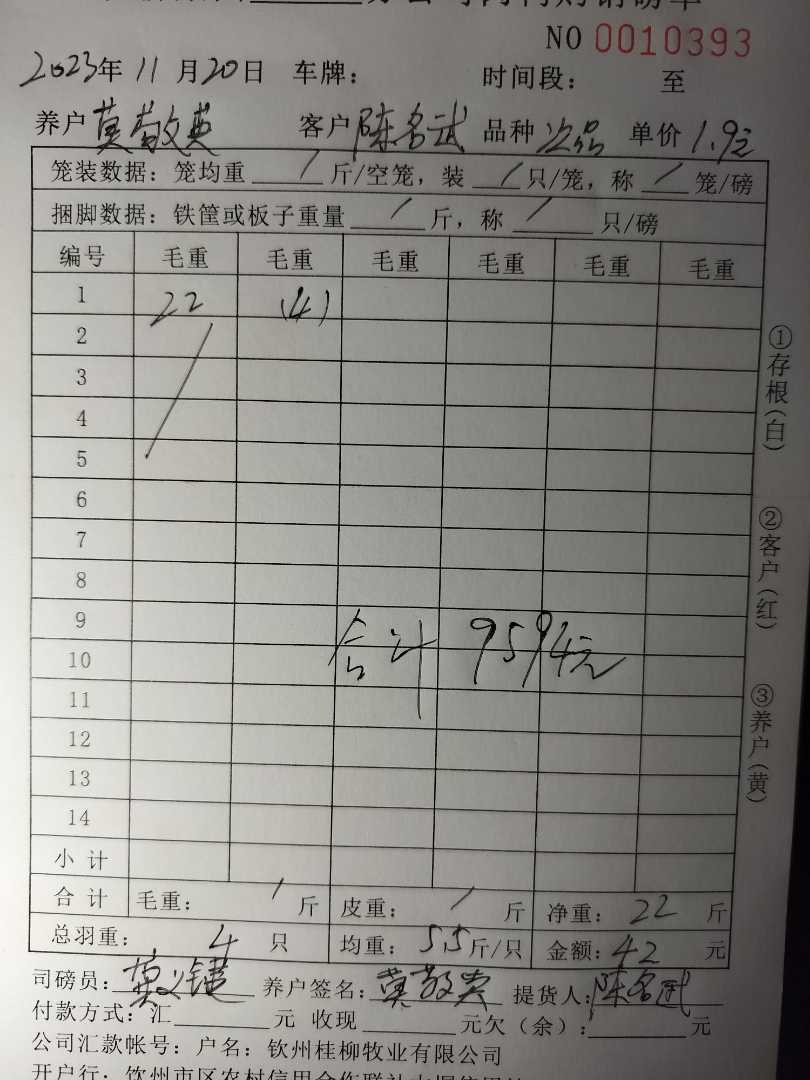 NO 0010393
2023年 11 月 20 日 车牌： 时间段： 至
养户 莫敬英 客户 陈名武 品种 次品 单价 1.9元
笼装数据：笼均重 / 斤/空笼，装 / 只/笼，称 / 笼/磅
捆脚数据：铁筐或板子重量 / 斤，称 / 只/磅
编号 毛重 毛重 毛重 毛重 毛重 毛重
1 22 (4)
2
3
4
5
6
7
8
9
合计 9594元
10
11
12
13
14
小计
合计 毛重： / 斤 皮重： / 斤 净重： 22 斤
总羽重： 4 只 均重： 5.5 斤/只 金额： 42 元
司磅员： 养户签名： 莫敬英 提货人： 陈名武
付款方式：汇 元 收现 元欠（余）： 元
公司汇款帐号：户名：钦州桂柳牧业有限公司
①存根(白)
②客户(红)
③养户(黄)